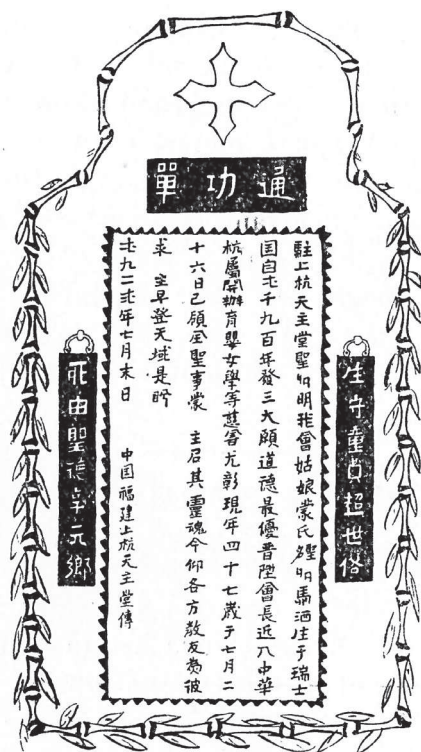 通功單
生守童貞超世俗
駐上杭天主堂聖叨明我會姑娘蒙氏叨馬洒生于瑞士
国自弌千九百年發三大願道德最優曾陞會長近入中華
杭屬開辦育嬰女學等慈善尤彰現年四十七歲于七月二
十六日已領全聖事蒙 主召其靈魂今仰各方教友為彼
求 主早登天域是盼
弌九二弍年七月末日 中国福建上杭天主堂傳
死由聖德享元鄉